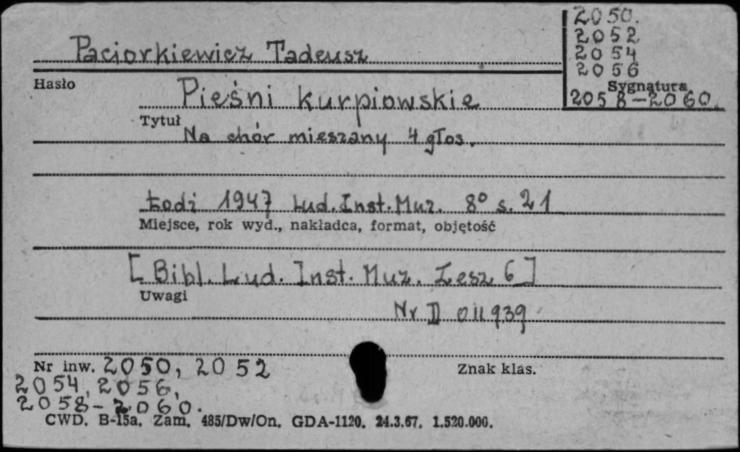 2050.
2052
2054
2056
Sygnatura
2058-2060.
Paciorkiewicz Tadeusz
Hasło
Pieśni kurpiowskie
Tytuł
Na chór mieszany 4 głos.
Łodź 1947 Lud.Inst.Muz. 8° s. 21
Miejsce, rok wyd., nakładca, format, objętość
[Bibl. Lud. Inst. Muz. Zesz 6]
Uwagi
Nr D 011939
Nr inw. 2050, 2052
Znak klas.
2054, 2056,
2058-2060.
CWD. B-15a. Zam. 485/Dw/On. GDA-1120. 24.3.67. 1.520.000.